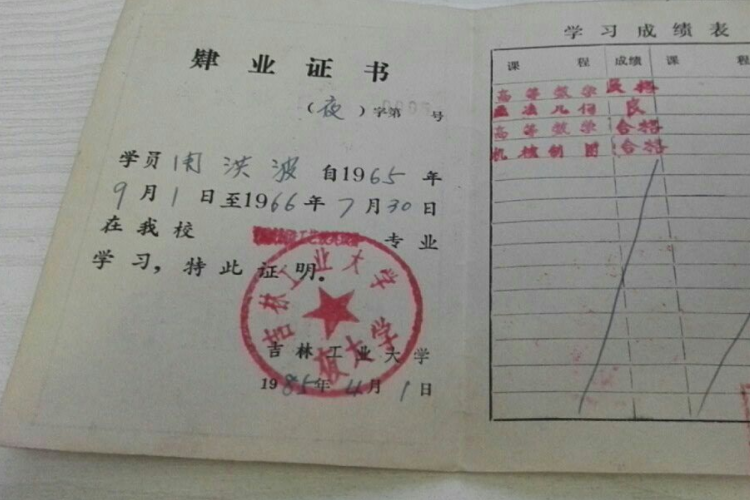 肄业证书
（夜）字第 号
学员周洪波自1965年
9月1日至1966年7月30日
在我校 专业
学习，特此证明。
吉林工业大学
夜大学
吉林工业大学
1985年4月1日
学习成绩表
课程 成绩 课程
高等数学 及格
画法几何 良
高等数学 合格
机械制图 合格